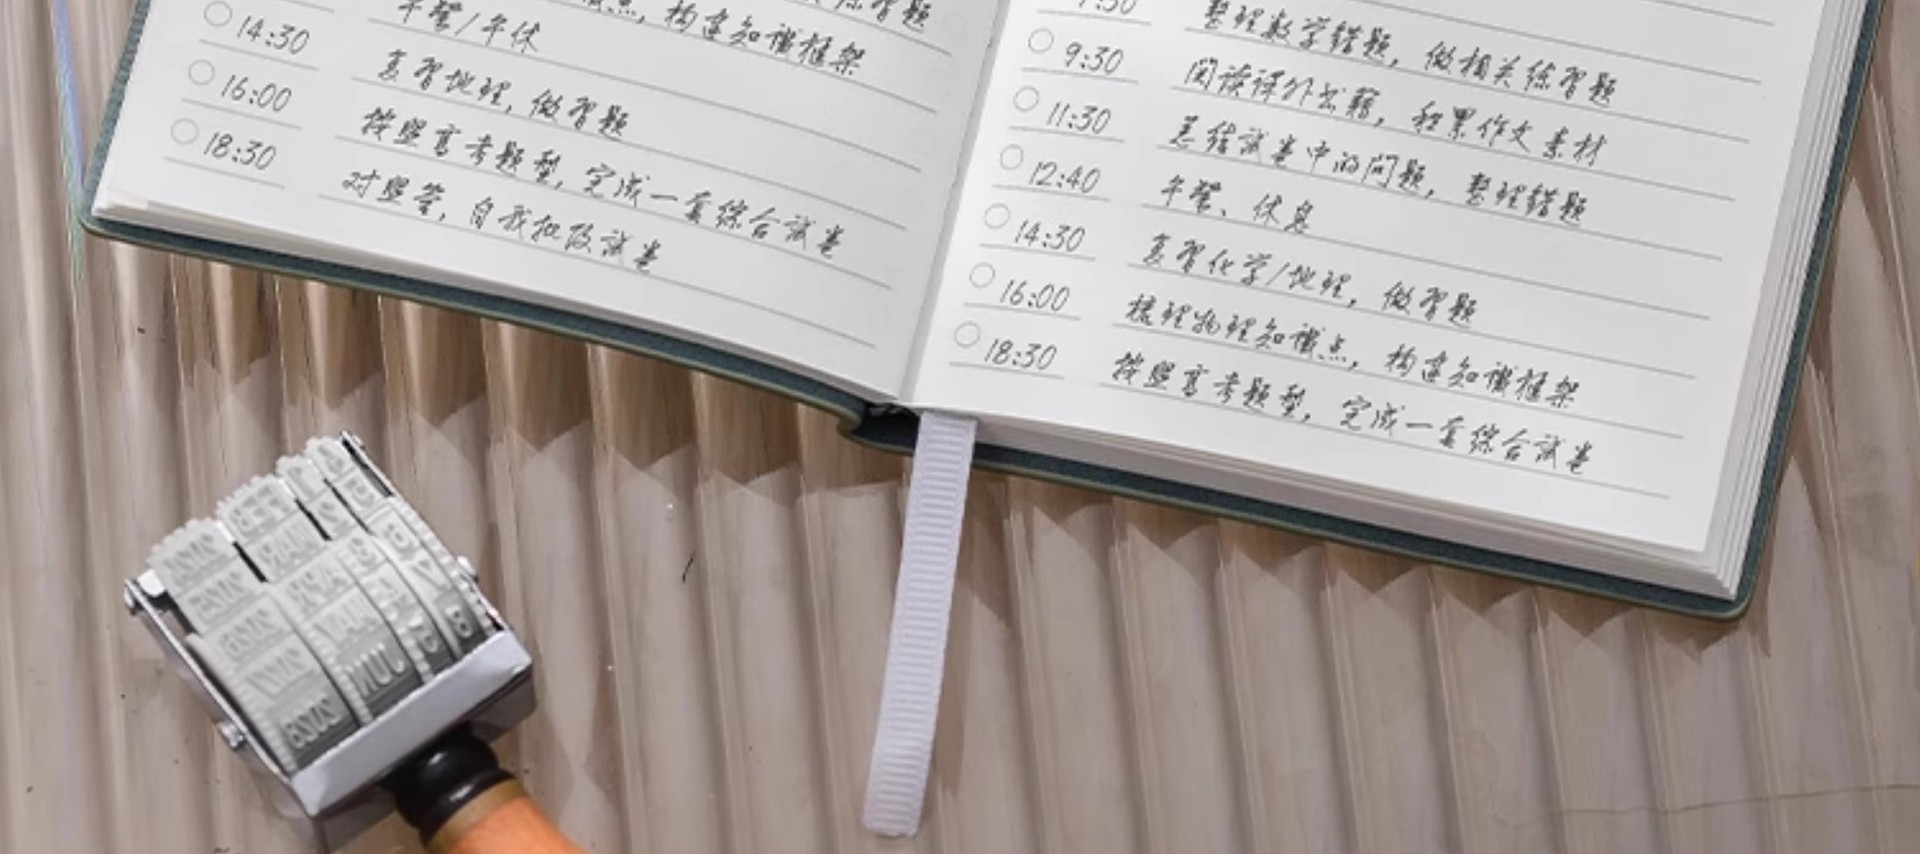 练习题
点，构建知识框架
午餐/午休
14:30 复习地理，做习题
16:00 按照高考题型，完成一套综合试卷
18:30 对照答，自我批改试卷
整理数学错题，做相关练习题
9:30 阅读课外书籍，积累作文素材
11:30 总结试卷中的问题，整理错题
12:40 午餐、休息
14:30 复习化学/地理，做习题
16:00 梳理物理知识点，构建知识框架
18:30 按照高考题型，完成一套综合试卷
JUN
2028